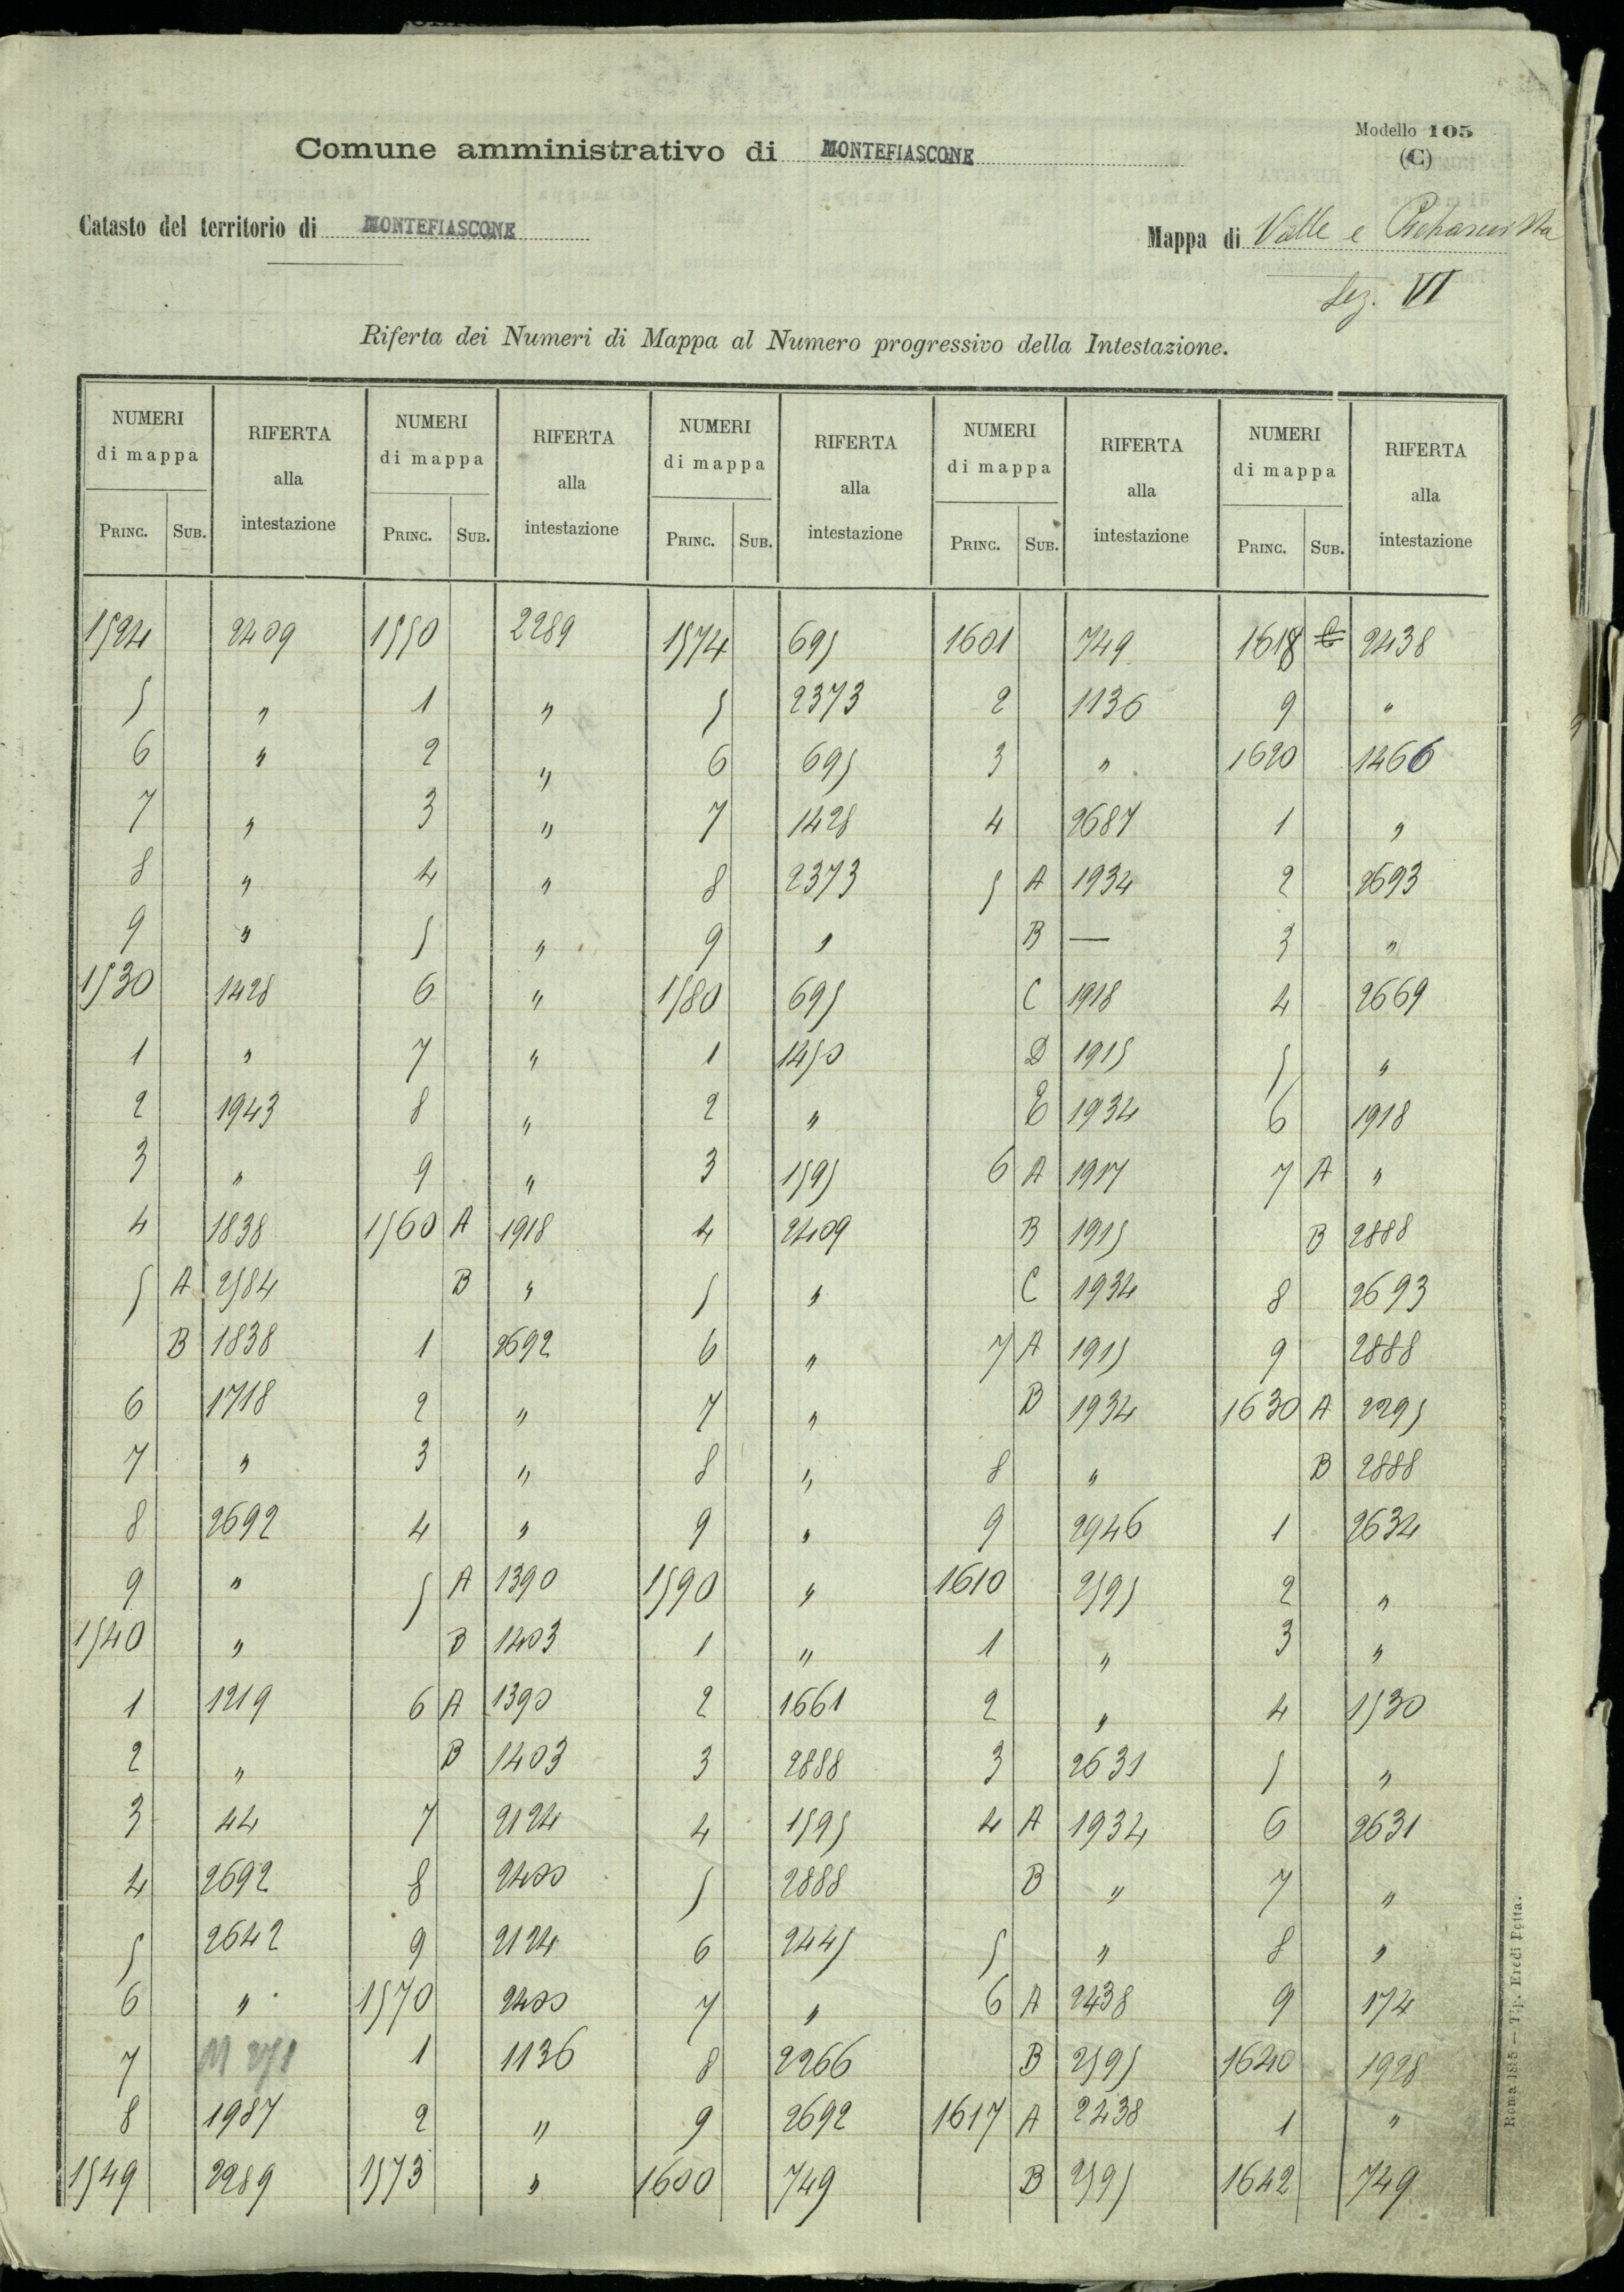 Modello 105
(C)
Comune amministrativo di MONTEFIASCONE
Catasto del territorio di MONTEFIASCONE
Mappa di Valle e
Sez. VI
Riferta dei Numeri di Mappa al Numero progressivo della Intestazione.
NUMERI RIFERTA NUMERI RIFERTA NUMERI RIFERTA NUMERI RIFERTA NUMERI RIFERTA
di mappa alla di mappa alla di mappa alla di mappa alla di mappa alla
PRINC. SUB. intestazione PRINC. SUB. intestazione PRINC. SUB. intestazione PRINC. SUB. intestazione PRINC. SUB. intestazione
1524 2409 1550 2289 1574 695 1601 749 1618 2438
5 " 1 " 5 2373 2 1136 9 "
6 " 2 " 6 695 3 " 1620 1466
7 " 3 " 7 1428 4 2687 1 "
8 " 4 " 8 2373 5 A 1934 2 2693
9 " 5 " 9 " B — 3 "
1530 1428 6 " 1580 695 C 1918 4 2669
1 " 7 " 1 1450 D 1915 5 "
2 1943 8 " 2 " E 1934 6 1918
3 " 9 " 3 1595 6 A 1917 7 A "
4 1838 1560 A 1918 4 2409 B 1915 B 2888
5 A 2584 B " 5 " C 1934 8 2693
B 1838 1 2692 6 " 7 A 1915 9 2888
6 1718 2 " 7 " B 1934 1630 A 2295
7 " 3 " 8 " 8 " B 2888
8 2692 4 " 9 " 9 2946 1 2634
9 " 5 A 1390 1590 " 1610 2595 2 "
1540 " B 1403 1 " 1 " 3 "
1 1219 6 A 1390 2 1661 2 " 4 1530
2 " B 1403 3 2888 3 2631 5 "
3 44 7 2124 4 1595 4 A 1934 6 2631
4 2692 8 2400 5 2888 B " 7 "
5 2642 9 2124 6 2445 5 " 8 "
6 " 1570 2400 7 " 6 A 2438 9 174
7 1 1136 8 2266 B 2595 1640 1928
8 1987 2 " 9 2692 1617 A 2438 1 "
1549 2289 1573 " 1600 749 B 2595 1642 749